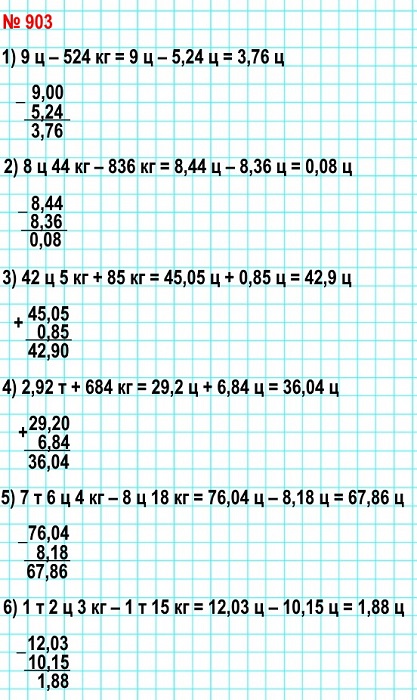 № 903
1) 9 ц – 524 кг = 9 ц – 5,24 ц = 3,76 ц
_ 9,00
5,24
3,76
2) 8 ц 44 кг – 836 кг = 8,44 ц – 8,36 ц = 0,08 ц
_ 8,44
8,36
0,08
3) 42 ц 5 кг + 85 кг = 45,05 ц + 0,85 ц = 42,9 ц
+ 45,05
0,85
42,90
4) 2,92 т + 684 кг = 29,2 ц + 6,84 ц = 36,04 ц
+ 29,20
6,84
36,04
5) 7 т 6 ц 4 кг – 8 ц 18 кг = 76,04 ц – 8,18 ц = 67,86 ц
_ 76,04
8,18
67,86
6) 1 т 2 ц 3 кг – 1 т 15 кг = 12,03 ц – 10,15 ц = 1,88 ц
_ 12,03
10,15
1,88